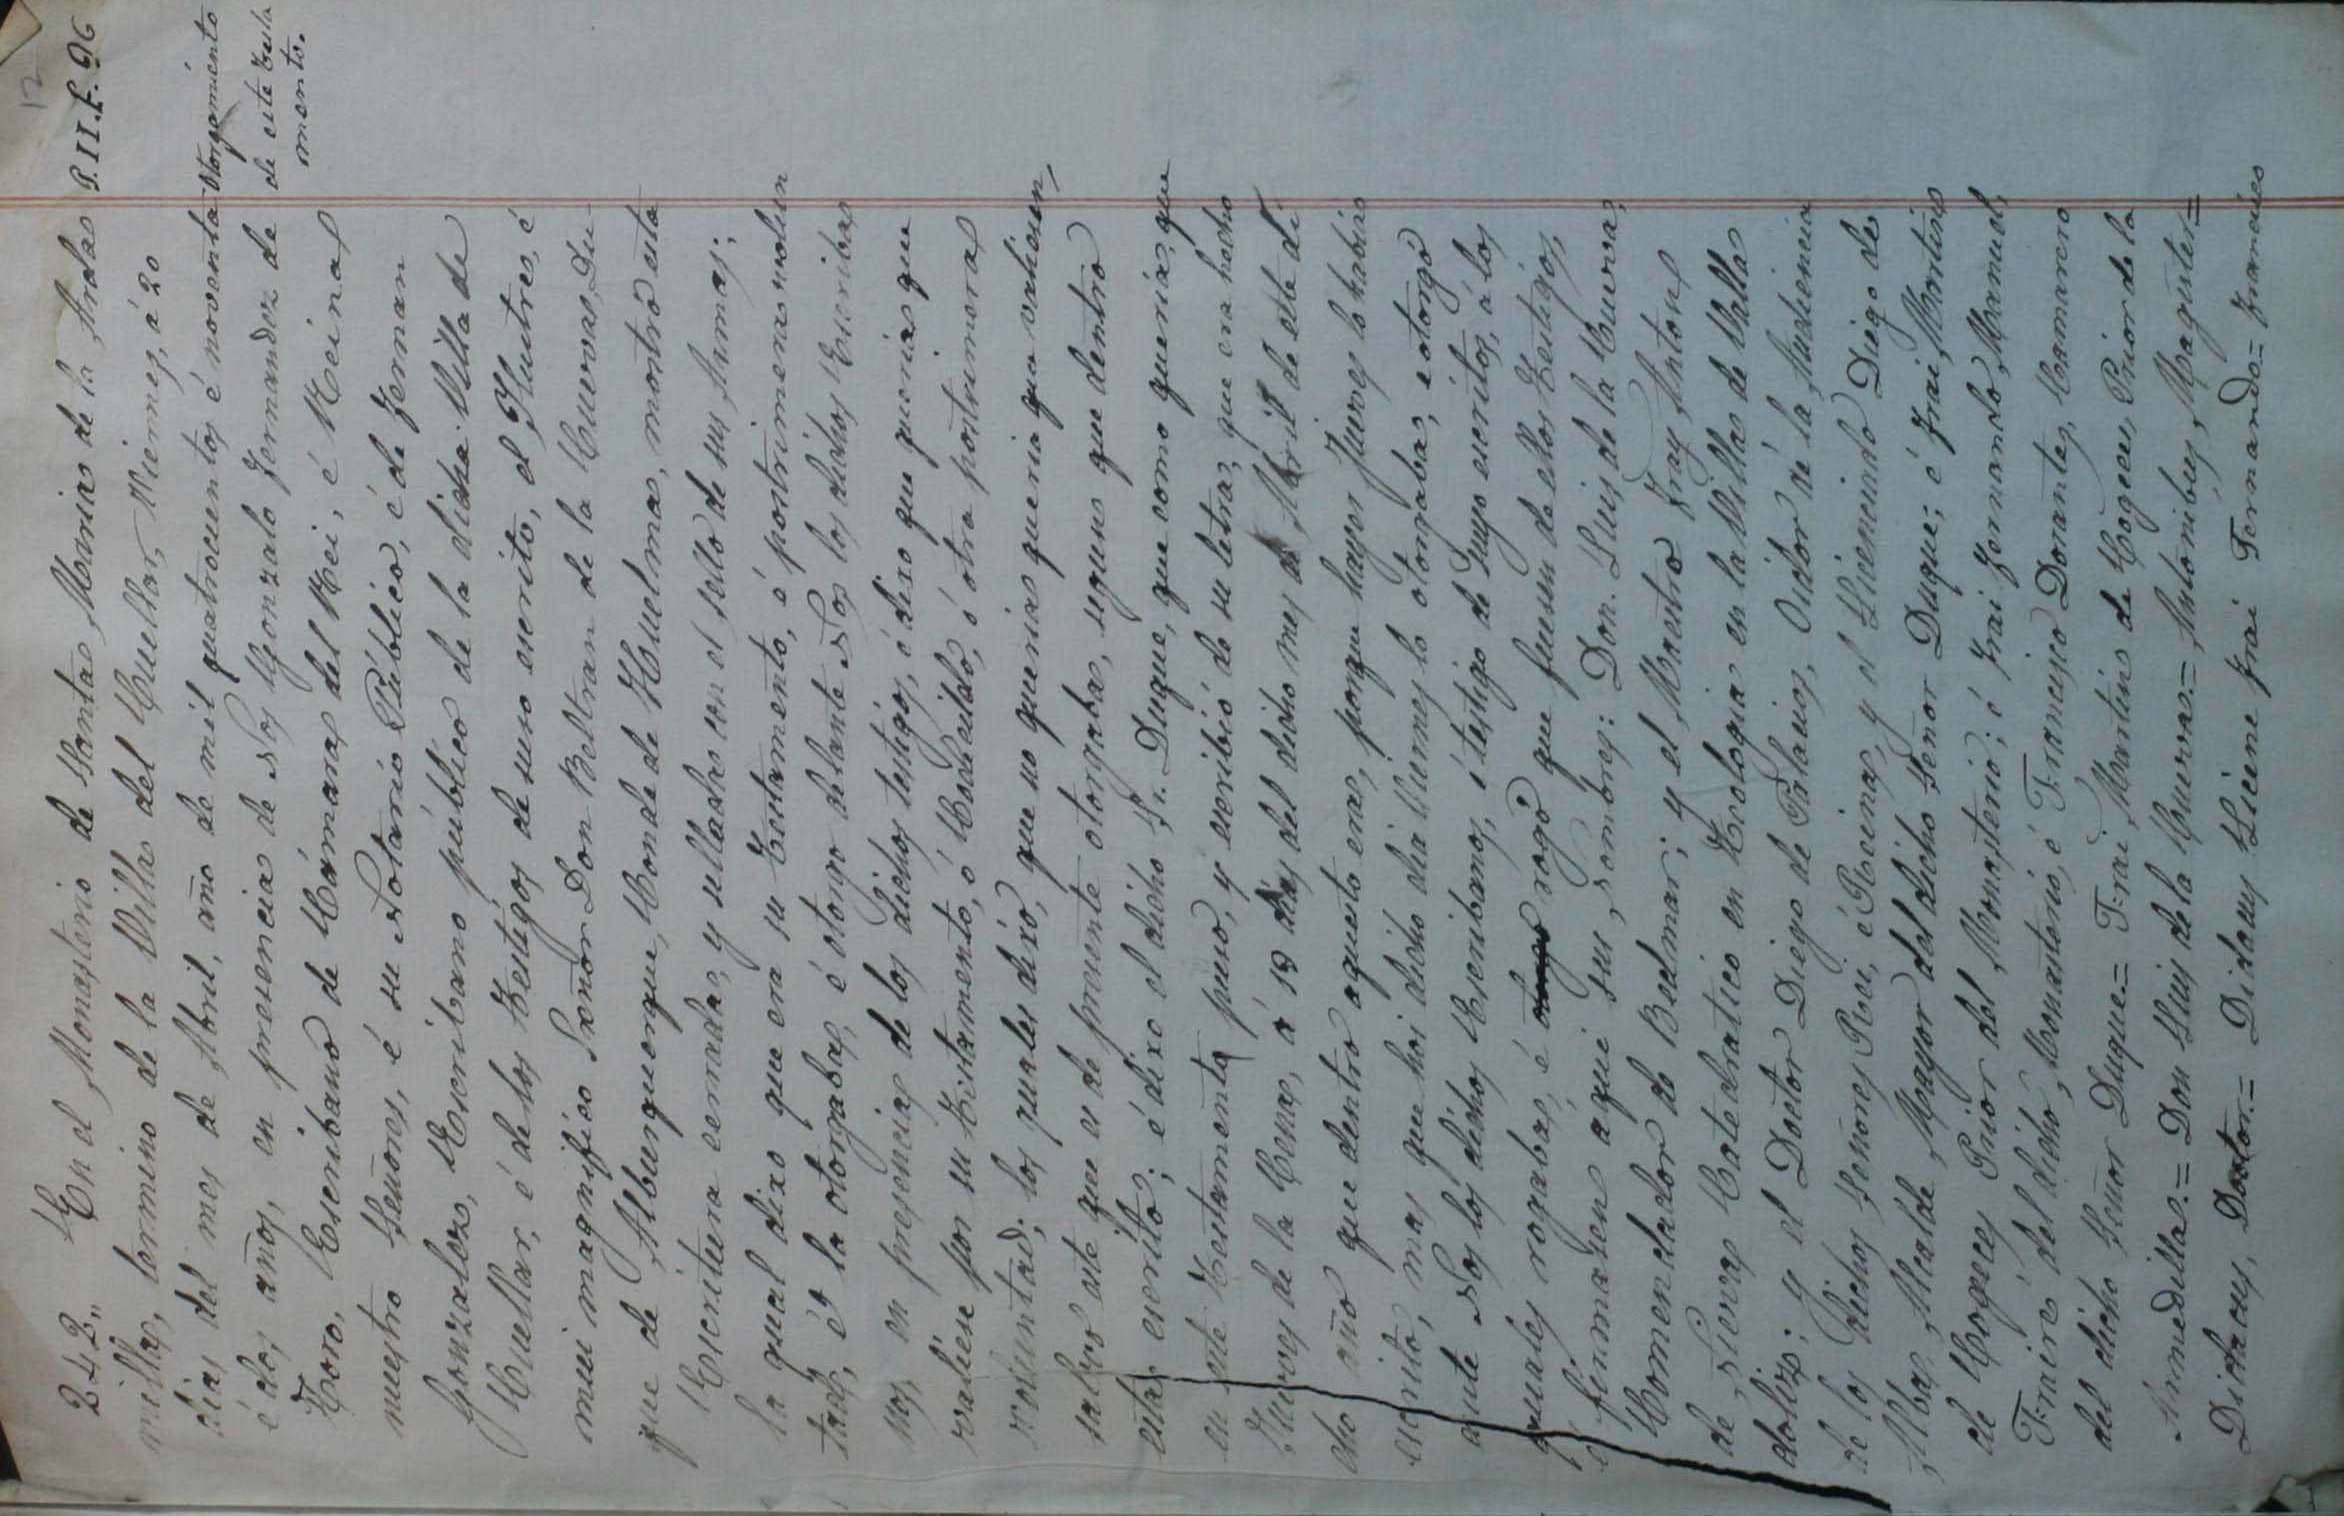 12
P. II. F. 96
Otorgamiento
de este Testa
mento.
242,, En el Monasterio de Santa Maria de la Arda
milla, termino de la Villa del Cuellar, Viernes, á 20
dias del mes de Abril, año de mil quatrocientos é noventa
é dos años, en presencia de Nos Gonzalo Fernandez de
Toro, Escribano de Cámara del Rei, é Reina
nuestro Señores, é su Notario Público, é de Fernan
Gonzalez, Escribano público de la dicha Villa de
Cuellar, é de los Testigos de suso escrito, el Ilustre, é
mui magnifico Señor Don Beltran de la Cueva, Du
que de Alburquerque, Conde de Huelma, mostró esta
Escritura cerrada, y sellada con el sello de sus Armas;
la qual dixo que era su Testamento, é postrimera volun
tad, é la otorgaba, é otorgo delante Nos los dichos Escriba
nos, en presencia de los dichos testigos, é dixo que queria que
valiese por su Testamento, ó Codecildo, ó otra postrimera
voluntad; los quales dixo, que no queria queria que valiesen,
salvo este que el de presente otorgaba, segun que dentro
está escrito; é dixo el dicho Sr. Duque, que como queria, que
en este Testamento puso, y escribió de su letra, que era hecho
Jueves de la Cena, á 19 dias del dicho mes de Abril de este di
cho año que dentro aquesto era, porque hayer Jueves lo habia
escrito, mas que hoi dicho dia Viernes lo otorgaba, é otorgó
ante Nos los dichos Escribanos, é testigo de yuso escritos, á los
quales rogaba, é rogó que fuesen de ellos Testigos,
é firmasen aqui sus nombres: Don Luis de la Cueva,
Comendador de Bedmar; y el Maestro Fray Anton
de Nieva Catedratico en Teologia en la Villa de Valla
dolid; y el Doctor Diego de Palacios, Oidor de la Audiencia
de los dichos Señores Rei, é Reina, y el Licenciado Diego de
Alba, Alcalde Mayor del dicho Señor Duque; é Frai Martin
de Cogeces Prior del Monasterio; é Frai Fernando Manuel,
Fraire del dicho Monasterio, é Francisco Dorantes, Camarero
del dicho Señor Duque.= Frai Martin de Cogeces, Prior de la
Armedilla.= Don Luis de la Cueva.= Magister=
Didacus, Doctor.= Didacus Licenc Frai Fernando= Francisco